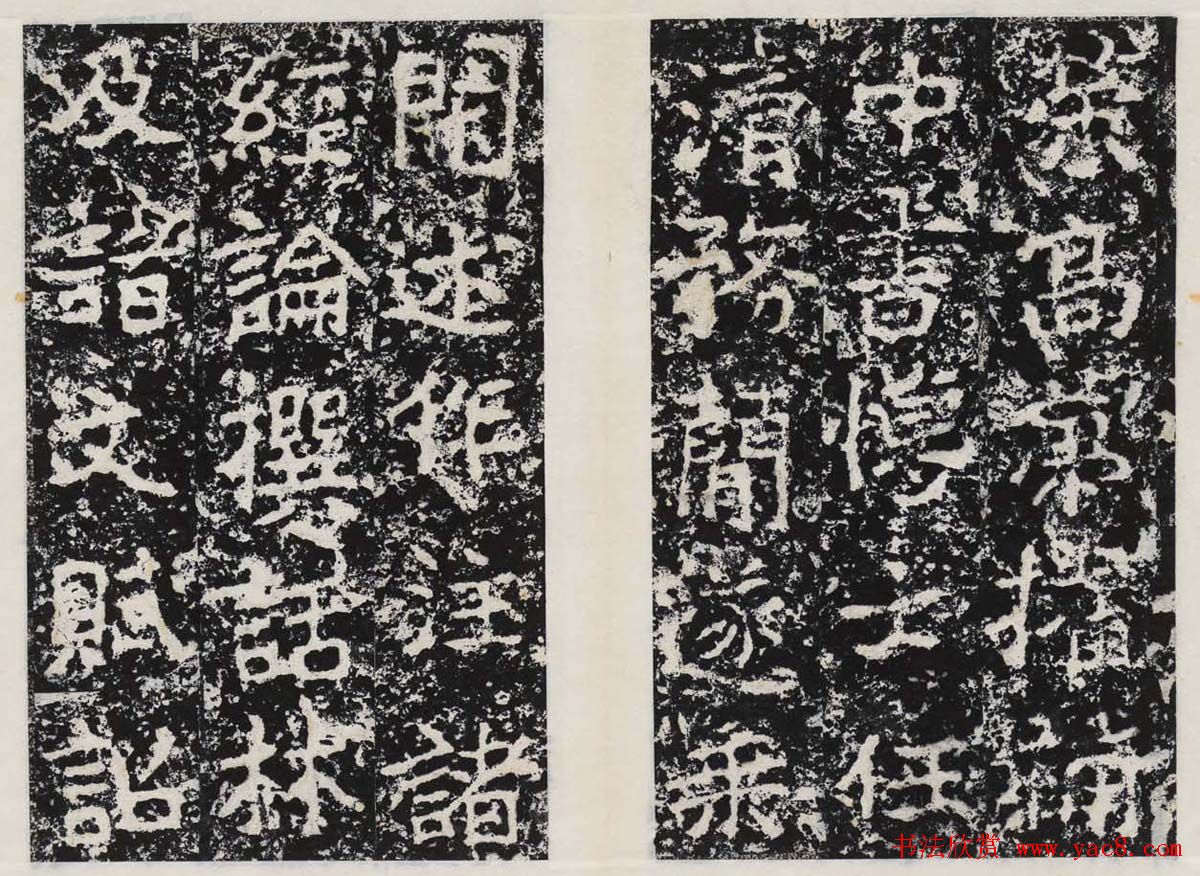 策高第擢補
中書博士任
清務簡遂乘
閒述作注諸
經論撰話林
及諸文賦詔
书法欣赏 www.yac8.com